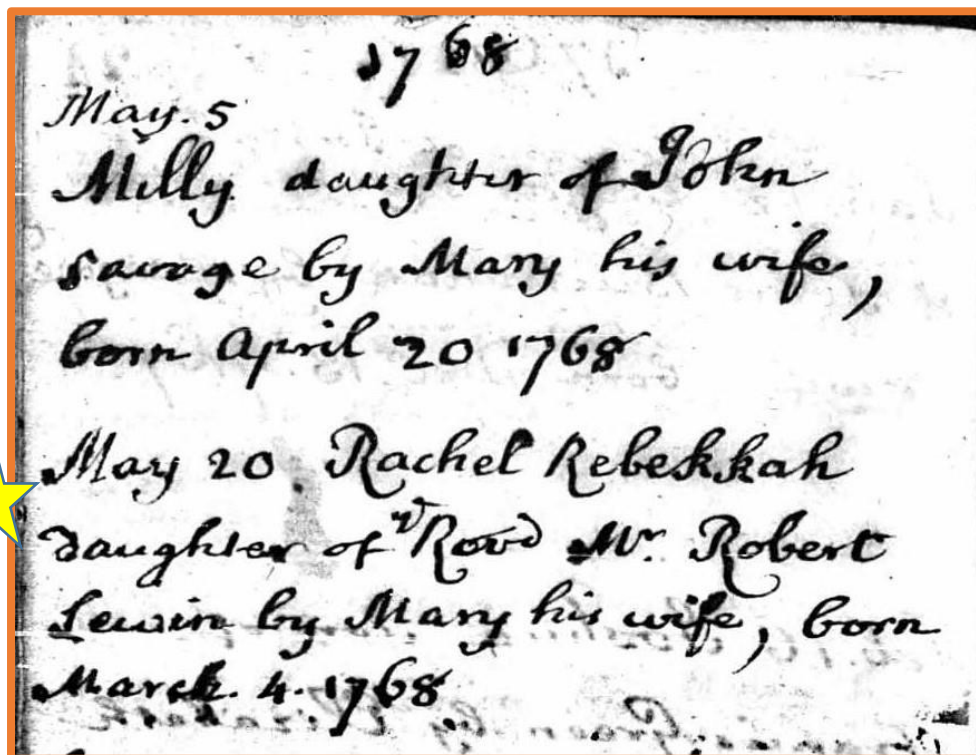 1768
May. 5
Milly daughter of John
Savage by Mary his wife,
born April 20 1768
May 20. Rachel Rebekkah
daughter of Revd Mr. Robert
Lewin by Mary his wife, born
March. 4. 1768.